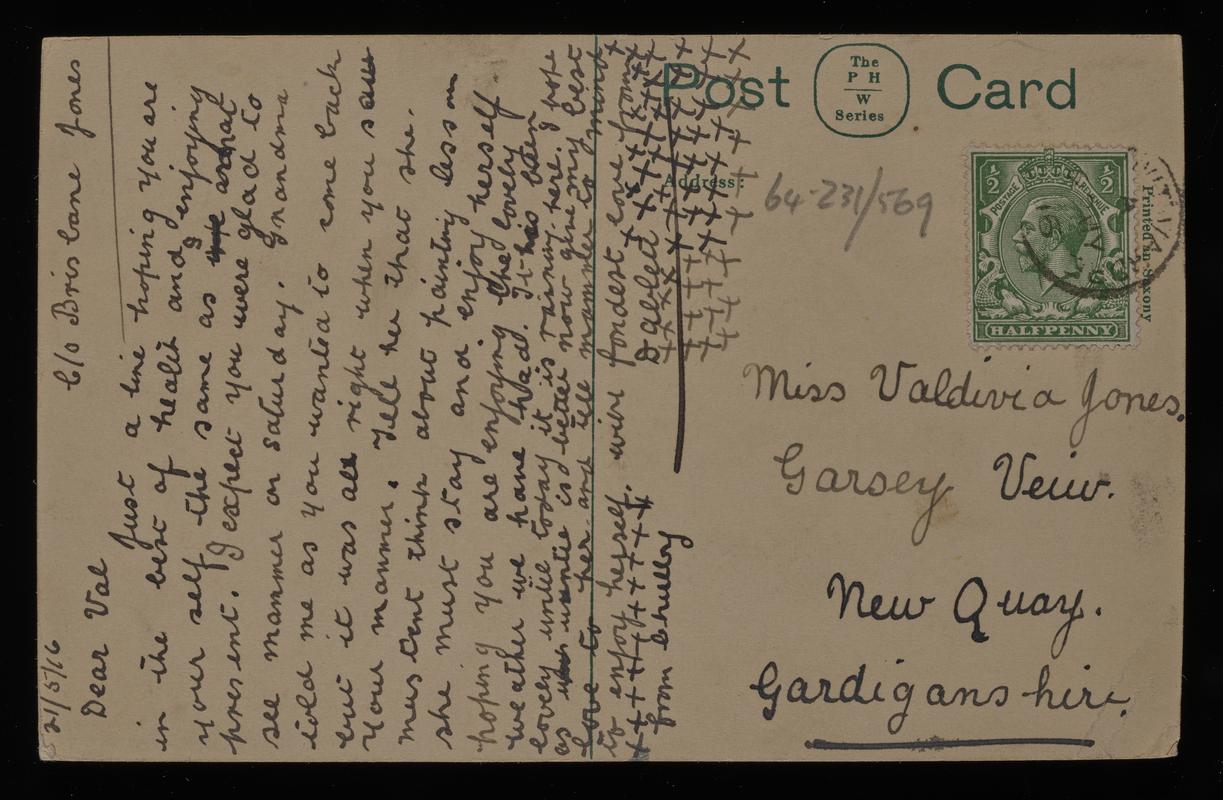 21/5/16
C/o Brisbane Jones
Dear Val
Just a line hoping you are
in the best of healt and enjoying
your self the same as I
present. I expect you were glad to
see mamer on Saturday. Grandma
told me as you wanted to come back
but it was all right when you
your mamer. Tell her that she.
mustent think about painting les on
she must stay and enjoy herself
hoping you are enjoying the lovely
weather we have had. It has been
lovely until today it is rainy here. I hope
as untie is better now give my best
love to her and tell mamer to mind
to enjoy herself. wire fondest love from
Dalled
from Chubby
Post Card
The
P H
W
Series
Address:
64-231/569
½ ½
POSTAGE REVENUE
HALFPENNY
Printed in Saxony
Miss Valdivia Jones.
Garsey Veiw.
New Quay.
Gardiganshire.